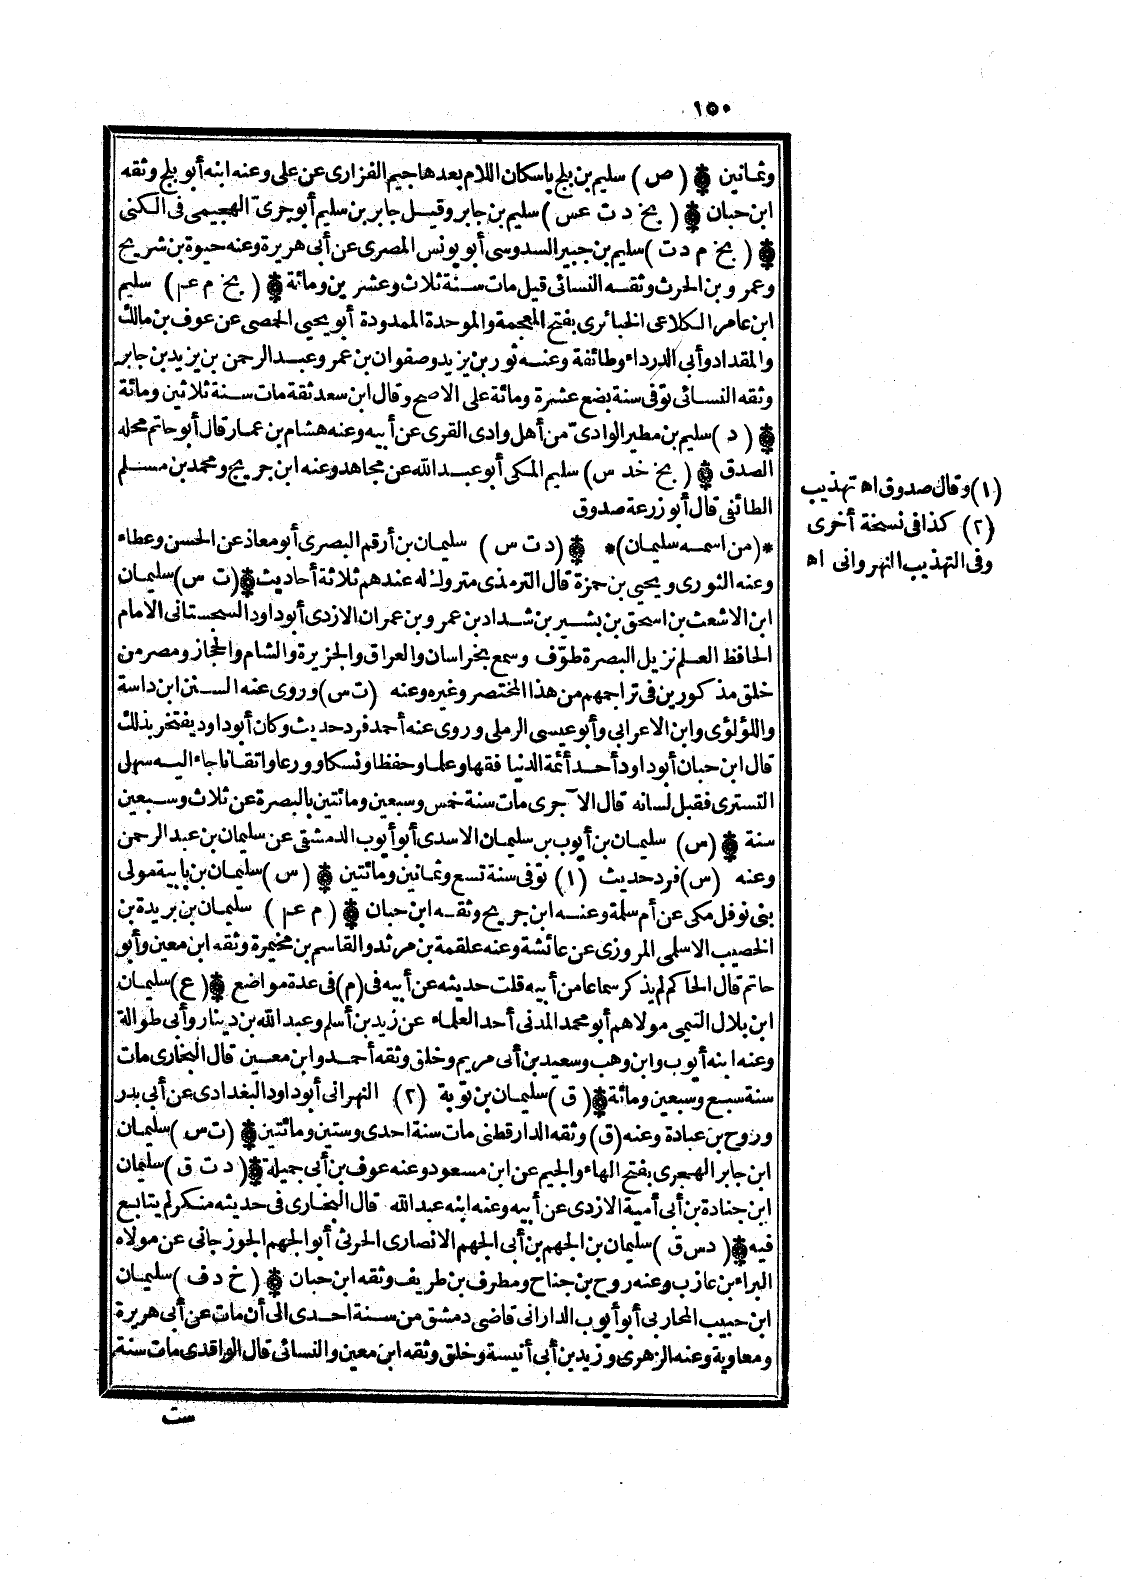 ١٥٠
وثمانين ۞ (ص) سليم بن بلج باسكان اللام بعدها جيم الفزارى عن على وعنه ابنه أبو بلج وثقه
ابن حبان ۞ (بخ د ت عس) سليم بن جابر وقيل جابر بن سليم أبو جرىّ الهجيمى فى الكنى
۞ (بخ م د ت) سليم بن جبير السدوسى أبو يونس المصرى عن أبى هريرة وعنه حيوة بن شريح
وعمرو بن الحرث وثقه النسائى قيل مات سنة ثلاث وعشرين ومائة ۞ (بخ م عم) سليم
ابن عامر الكلاعى الخبائرى بفتح المعجمة والموحدة الممدودة أبو يحيى الحمصى عن عوف بن مالك
والمقداد وأبى الدرداء وطائفة وعنه ثور بن يزيد وصفوان بن عمر وعبد الرحمن بن يزيد بن جابر
وثقه النسائى توفى سنة بضع عشرة ومائة على الاصح وقال ابن سعد ثقة مات سنة ثلاثين ومائة
۞ (د) سليم بن مطير الوادىّ من أهل وادى القرى عن أبيه وعنه هشام بن عمار قال أبو حاتم محله
الصدق ۞ (بخ خد س) سليم المكى أبو عبد الله عن مجاهد وعنه ابن جريج ومحمد بن مسلم
الطائفى قال أبو زرعة صدوق
*(من اسمه سليمان)* ۞ (د ت س) سليمان بن أرقم البصرى أبو معاذ عن الحسن وعطاء
وعنه الثورى ويحيى بن حمزة قال الترمذى متروك له عندهم ثلاثة أحاديث ۞ (ت س) سليمان
ابن الاشعث بن اسحق بن بشير بن شداد بن عمرو بن عمران الازدى أبو داود السجستانى الامام
الحافظ العلم نزيل البصرة طوّف وسمع بخراسان والعراق والجزيرة والشام والحجاز ومصر من
خلق مذكورين فى تراجمهم من هذا المختصر وغيره وعنه (ت س) وروى عنه السنن ابن داسة
واللؤلؤى وابن الاعرابى وأبو عيسى الرملى وروى عنه أحمد فرد حديث وكان أبو داود يفتخر بذلك
قال ابن حبان أبو داود أحد أئمة الدنيا فقها وعلما وحفظا ونسكا وورعا واتقانا جاء اليه سهل
التسترى فقبل لسانه قال الآجرى مات سنة خمس وسبعين ومائتين بالبصرة عن ثلاث وسبعين
سنة ۞ (س) سليمان بن أيوب بن سليمان الاسدى أبو أيوب الدمشقى عن سليمان بن عبد الرحمن
وعنه (س) فرد حديث (١) توفى سنة تسع وثمانين ومائتين ۞ (س) سليمان بن بابية مولى
بنى نوفل مكى عن أم سلمة وعنه ابن جريج وثقه ابن حبان ۞ (م عم) سليمان بن بريدة بن
الخصيب الاسلمى المروزى عن عائشة وعنه علقمة بن مرثد والقاسم بن مخيمرة وثقه ابن معين وأبو
حاتم قال الحاكم لم يذكر سماعا من أبيه قلت حديثه عن أبيه فى (م) فى عدة مواضع ۞ (ع) سليمان
ابن بلال التيمى مولاهم أبو محمد المدنى أحد العلماء عن زيد بن أسلم وعبد الله بن دينار وأبى طوالة
وعنه ابنه أيوب وابن وهب وسعيد بن أبى مريم وخلق وثقه أحمد وابن معين قال البخارى مات
سنة سبع وسبعين ومائة ۞ (ق) سليمان بن توبة (٢) النهرانى أبو داود البغدادى عن أبى بدر
وروح بن عبادة وعنه (ق) وثقه الدارقطنى مات سنة احدى وستين ومائتين ۞ (ت س) سليمان
ابن جابر الهجرى بفتح الهاء والجيم عن ابن مسعود وعنه عوف بن أبى جميلة ۞ (د ت ق) سليمان
ابن جنادة بن أبى أمية الازدى عن أبيه وعنه ابنه عبد الله قال البخارى فى حديثه منكر لم يتابع
فيه ۞ (د س ق) سليمان بن الجهم بن أبى الجهم الانصارى الحرثى أبو الجهم الجوزجانى عن مولاه
البراء بن عازب وعنه روح بن جناح ومطرف بن طريف وثقه ابن حبان ۞ (خ د ق) سليمان
ابن حبيب المحاربى أبو أيوب الدارانى قاضى دمشق من سنة احدى الى أن مات عن أبى هريرة
ومعاوية وعنه الزهرى وزيد بن أبى أنيسة وخلق وثقه ابن معين والنسائى قال الواقدى مات سنة
ست
(١) وقال صدوق اه تهذيب
(٢) كذا فى نسخة أخرى
وفى التهذيب النهروانى اه